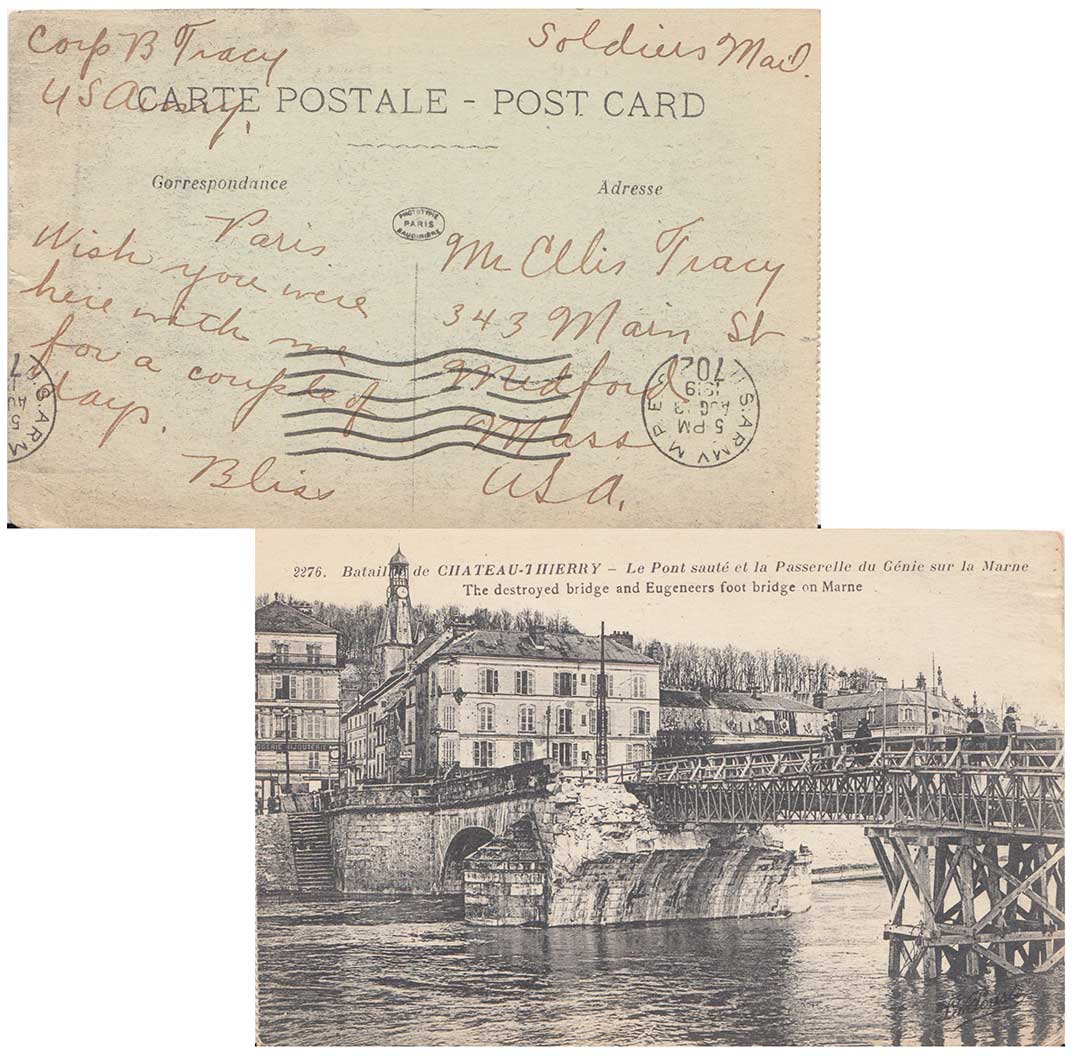 Corp B Tracy
Soldiers Mail.
US Army.
CARTE POSTALE - POST CARD
Correspondance
Adresse
PHOTOTYPIE
PARIS
BAUDINIÈRE
Paris
Wish you were
here with me
for a couple of
days.
Bliss
Mr Ellis Tracy
343 Main St
Medford
Mass
USA.
U.S. ARMY M P E
702
1919
AUG 13
5 PM
U.S. ARM
7
AU
5
2276. Bataille de CHATEAU-THIERRY - Le Pont sauté et la Passerelle du Génie sur la Marne
The destroyed bridge and Eugeneers foot bridge on Marne
BIJOUTERIE